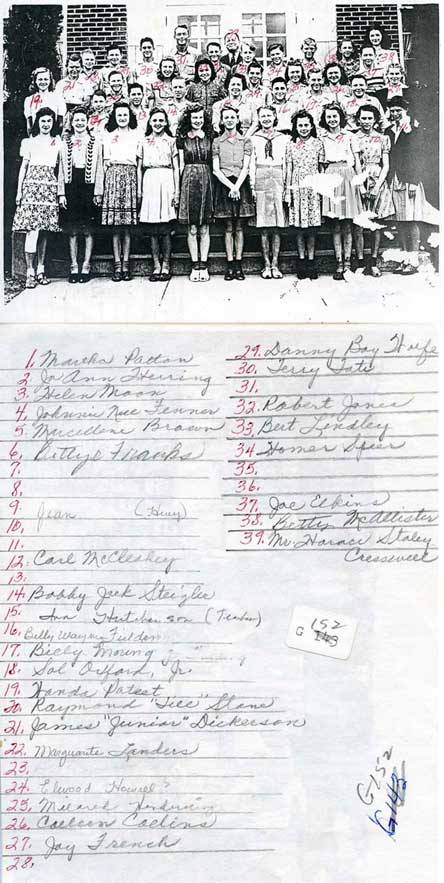 1. Martha Patton
2. Jo Ann Herring
3. Helen Moon
4. Johnnie Nue Fenner
5. Marcellene Brown
6. Bettye Franks
7.
8.
9. Jean
10.
11.
12. Carl McCleskey
13.
14. Bobby Jack Steigler
15. Ina Hutcherson (Teacher)
16. Billy Wayne
17. Billy
18. Sol Orfford, Jr.
19. Wanda Pateet
20. Raymond Stone
21. James "Junior" Dickerson
22. Marguarite Landers
23.
24. Elwood Howell?
25.
26. Colleen Collins
27. Joy French
28.
29. Danny Boy
30. Terry Tate
31.
32. Robert Jones
33. Bert Lindley
34 Homer Spier
35.
36.
37. Joe Elkins
38. Betty McAllister
39. Mr. Horace Staley
Cresswell
152
G 143
G152